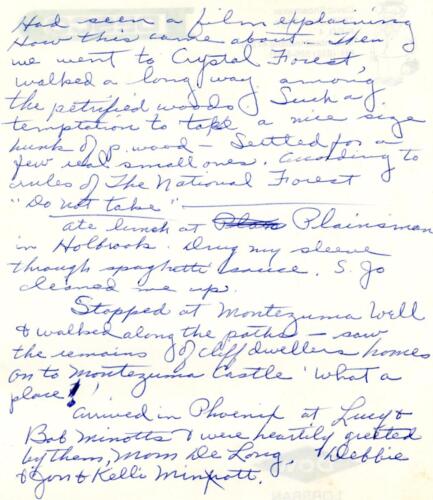 Had seen a film explaining
How this came about - Then
we went to Crystal Forest
walked a long way among
the petrified woods. Such a
temptation to take a nice size
hunk of p. wood - Settled for a
few real small ones. According to
rules of The National Forest
"Do not take"
ate lunch at Plainsman
in Holbrook. Drug my sleeve
through spaghetti sauce. S. Jo
cleaned me up.
Stopped at Montezuma Well
& walked along the paths - saw
the remains of cliff dwellers homes
on to Montezuma Castle 'What a
place!'
Arrived in Phoenix at Lucy &
Bob Minotts & were heartily greeted
by them, Mom De Long, & Debbie
& Jon & Kelli Minott.